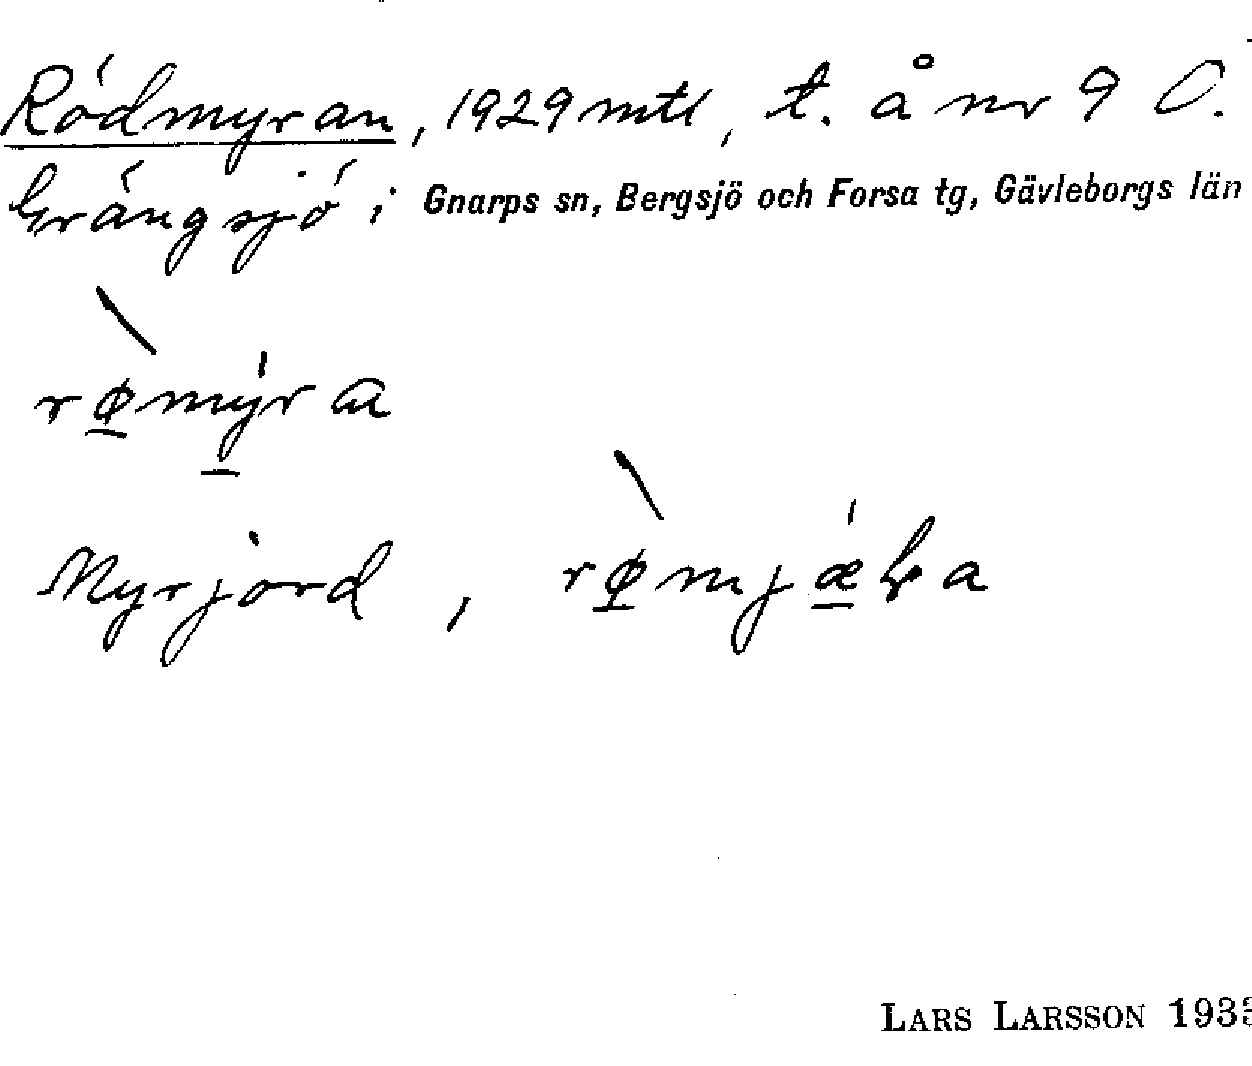 Rödmyran, 1929 mtl, t. å nr 9 Ö.
Grängsjö i Gnarps sn, Bergsjö och Forsa tg, Gävleborgs län
Myrjord,
LARS LARSSON 193